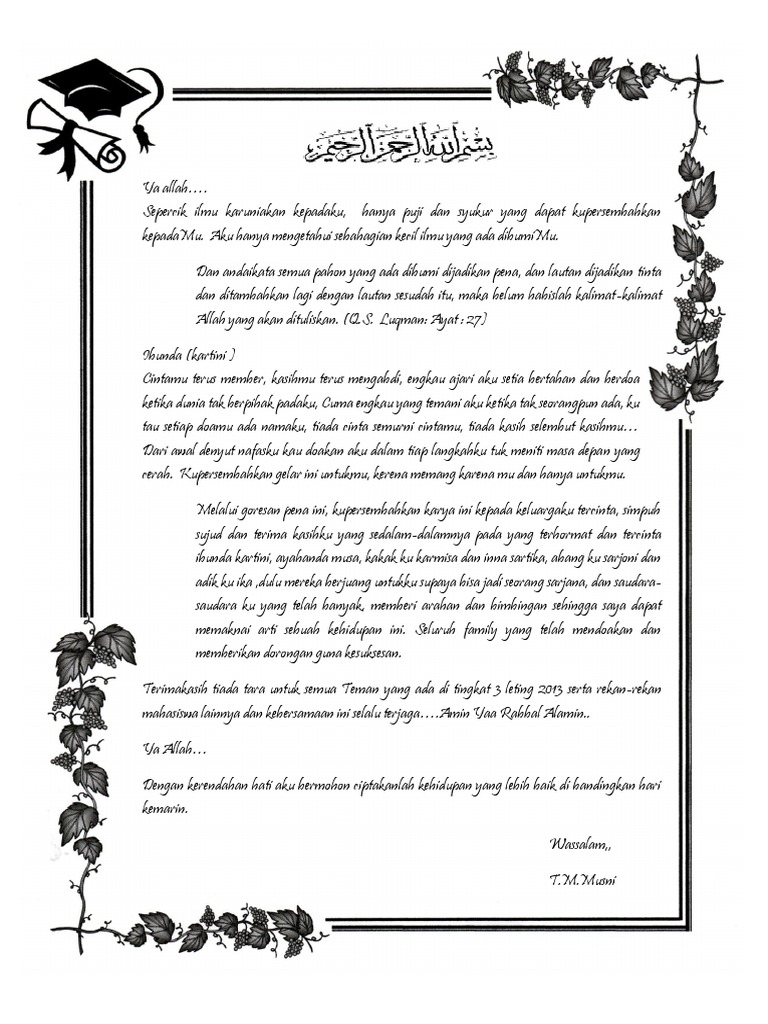 بسم الله الرحمن الرحيم
Ya allah....
Sepercik ilmu karuniakan kepadaku, hanya puji dan syukur yang dapat kupersembahkan
kepadaMu. Aku hanya mengetahui sebahagian kecil ilmu yang ada dibumiMu.
Dan andaikata semua pahon yang ada dibumi dijadikan pena, dan lautan dijadikan tinta
dan ditambahkan lagi dengan lautan sesudah itu, maka belum habislah kalimat-kalimat
Allah yang akan dituliskan. (Q.S. Luqman: Ayat : 27)
Ibunda (kartini )
Cintamu terus member, kasihmu terus mengabdi, engkau ajari aku setia bertahan dan berdoa
ketika dunia tak berpihak padaku, Cuma engkau yang temani aku ketika tak seorangpun ada, ku
tau setiap doamu ada namaku, tiada cinta semurni cintamu, tiada kasih selembut kasihmu...
Dari awal denyut nafasku kau doakan aku dalam tiap langkahku tuk meniti masa depan yang
cerah. Kupersembahkan gelar ini untukmu, kerena memang karena mu dan hanya untukmu.
Melalui goresan pena ini, kupersembahkan karya ini kepada keluargaku tercinta, simpuh
sujud dan terima kasihku yang sedalam-dalamnya pada yang terhormat dan tercinta
ibunda kartini, ayahanda musa, kakak ku karmisa dan inna sartika, abang ku sarjoni dan
adik ku ika ,dulu mereka berjuang untukku supaya bisa jadi seorang sarjana, dan saudara-
saudara ku yang telah banyak, memberi arahan dan bimbingan sehingga saya dapat
memaknai arti sebuah kehidupan ini. Seluruh family yang telah mendoakan dan
memberikan dorongan guna kesuksesan.
Terimakasih tiada tara untuk semua Teman yang ada di tingkat 3 leting 2013 serta rekan-rekan
mahasiswa lainnya dan kebersamaan ini selalu terjaga....Amin Yaa Rabbal Alamin..
Ya Allah...
Dengan kerendahan hati aku bermohon ciptakanlah kehidupan yang lebih baik di bandingkan hari
kemarin.
Wassalam,,
T.M.Musni